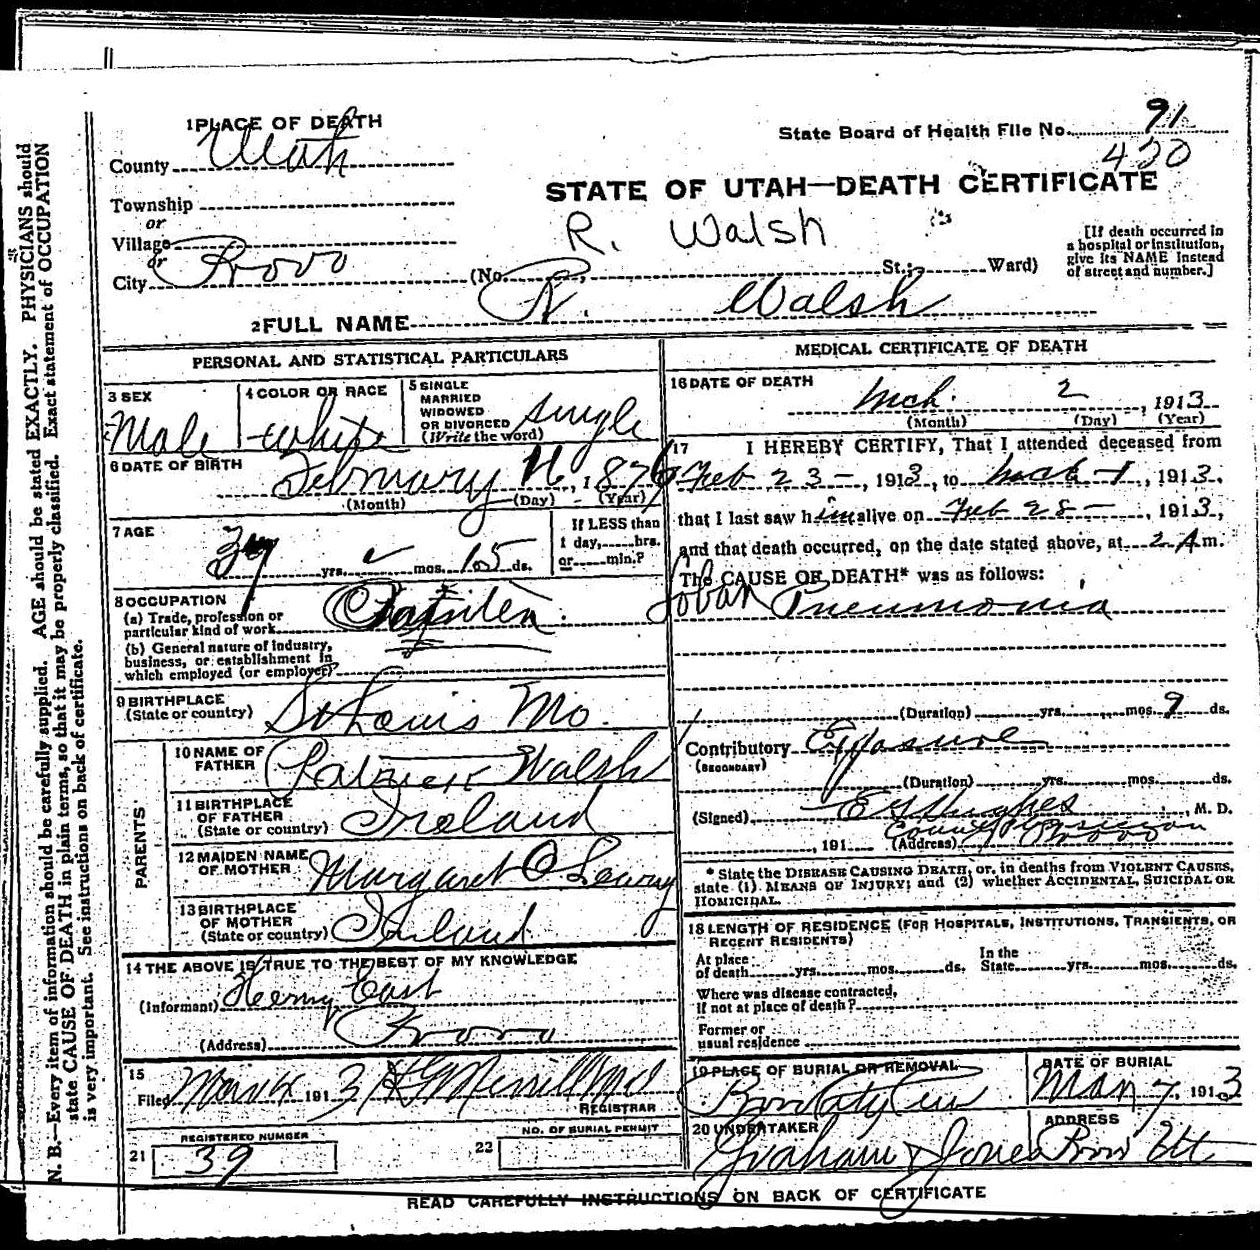 1 PLACE OF DEATH
County Utah
Township
or
Village
or
City Provo
State Board of Health File No. 91
420
STATE OF UTAH—DEATH CERTIFICATE
R. Walsh
(No. St.; Ward)
[If death occurred in a hospital or institution, give its NAME instead of street and number.]
2 FULL NAME R. Walsh
PERSONAL AND STATISTICAL PARTICULARS
3 SEX
Male
4 COLOR OR RACE
White
5 SINGLE MARRIED WIDOWED OR DIVORCED (Write the word)
Single
6 DATE OF BIRTH
February 16, 1876
(Month) (Day) (Year)
7 AGE
37 yrs. mos. 15 ds.
If LESS than 1 day, hrs. or min.?
8 OCCUPATION
(a) Trade, profession or particular kind of work
(b) General nature of industry, business, or establishment in which employed (or employer)
9 BIRTHPLACE
(State or country) St Louis Mo.
PARENTS
10 NAME OF FATHER Patrick Walsh
11 BIRTHPLACE OF FATHER (State or country) Ireland
12 MAIDEN NAME OF MOTHER Margaret O Leary
13 BIRTHPLACE OF MOTHER (State or country) Ireland
14 THE ABOVE IS TRUE TO THE BEST OF MY KNOWLEDGE
(Informant) Henry East
(Address) Provo
15
Filed Mar 1913 Merrill MD
REGISTRAR
REGISTERED NUMBER
21 39
NO. OF BURIAL PERMIT
22
MEDICAL CERTIFICATE OF DEATH
16 DATE OF DEATH
Mch. 2, 1913
(Month) (Day) (Year)
17 I HEREBY CERTIFY, That I attended deceased from
Feb 23 - , 1913, to Mch - 1, 1913.
that I last saw him alive on Feb 28 - , 1913,
and that death occurred, on the date stated above, at 2 A m.
The CAUSE OF DEATH* was as follows:
Lobar Pneumonia
(Duration) yrs. mos. 9 ds.
Contributory Exposure
(SECONDARY)
(Duration) yrs. mos. ds.
(Signed) Hughes, M. D.
County Physician
, 191 (Address) Provo
* State the DISEASE CAUSING DEATH, or, in deaths from VIOLENT CAUSES, state (1) MEANS OF INJURY; and (2) whether ACCIDENTAL, SUICIDAL OR HOMICIDAL.
18 LENGTH OF RESIDENCE (FOR HOSPITALS, INSTITUTIONS, TRANSIENTS, OR RECENT RESIDENTS)
At place of death yrs. mos. ds. In the State yrs. mos. ds.
Where was disease contracted, if not at place of death?
Former or usual residence
19 PLACE OF BURIAL OR REMOVAL
Provo City Cem
DATE OF BURIAL
Mar 7, 1913
20 UNDERTAKER
Graham & Jones
ADDRESS
Provo Ut
READ CAREFULLY INSTRUCTIONS ON BACK OF CERTIFICATE
N. B.—Every item of information should be carefully supplied. AGE should be stated EXACTLY. PHYSICIANS should
state CAUSE OF DEATH in plain terms, so that it may be properly classified. Exact statement of OCCUPATION
is very important. See instructions on back of certificate.